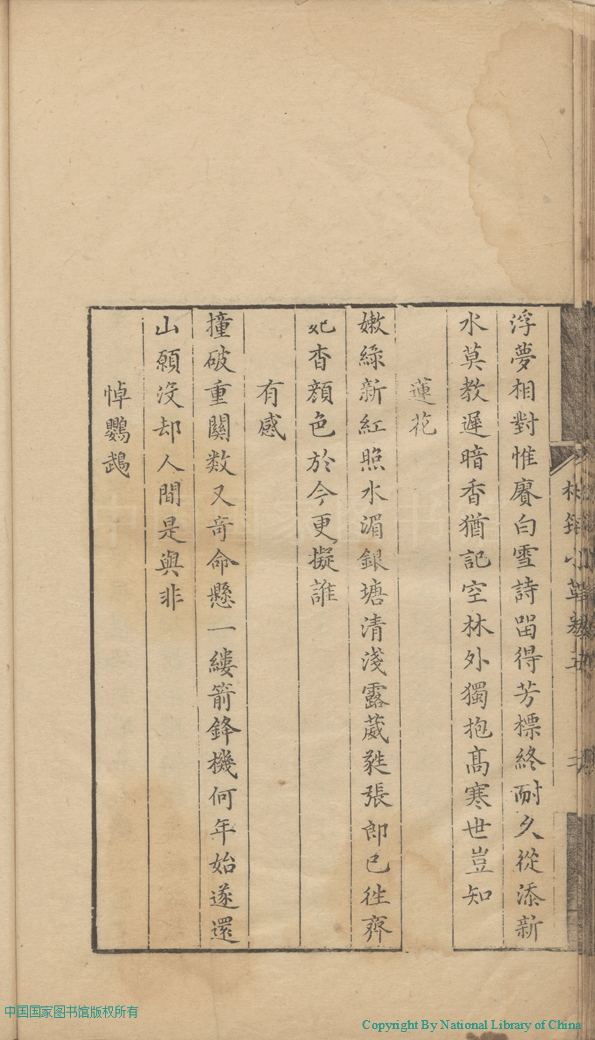 浮夢相對惟賡白雪詩畱得芳標終耐久從添新
水莫教遲暗香猶記空林外獨抱高寒世豈知
蓮花
嫩綠新紅照水湄銀塘清淺露葳蕤張郎已往齊
妃杳顔色於今更擬誰
有感
撞破重關数又奇命懸一縷箭鋒機何年始遂還
山願没却人間是與非
悼鸚鵡
中国国家图书馆版权所有
Copyright By National Library of China